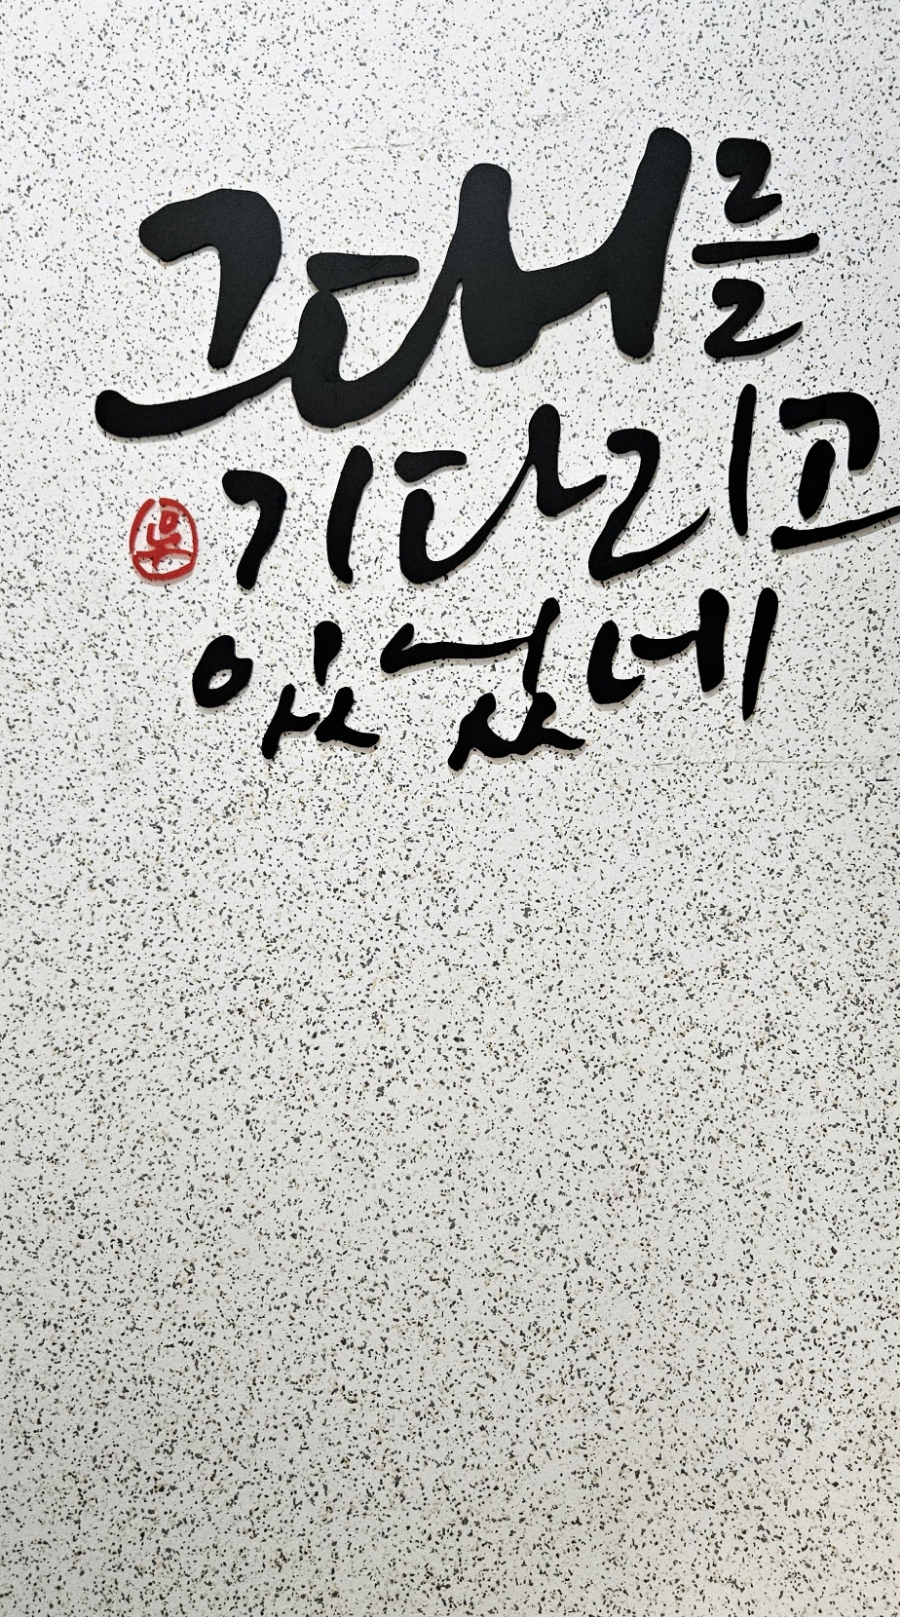 그대를
기다리고
있었네